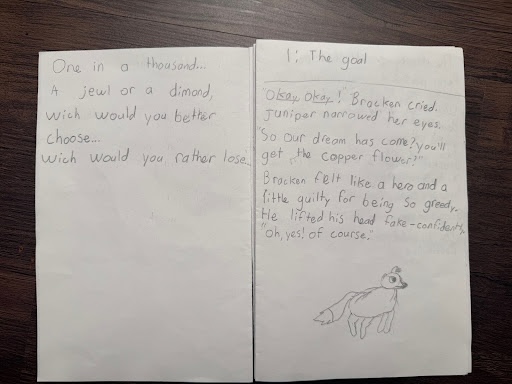 One in a thousand...
A jewl or a dimond,
wich would you better
choose...
wich would you rather lose...
1: The goal
"Okay Okay!" Bracken cried.
Juniper narrowed her eyes.
"So our dream has come? you'll
get the copper flower?"
Bracken felt like a hero and a
little guilty for being so greedy.
He lifted his head fake-confidently.
"Oh, yes! of course."